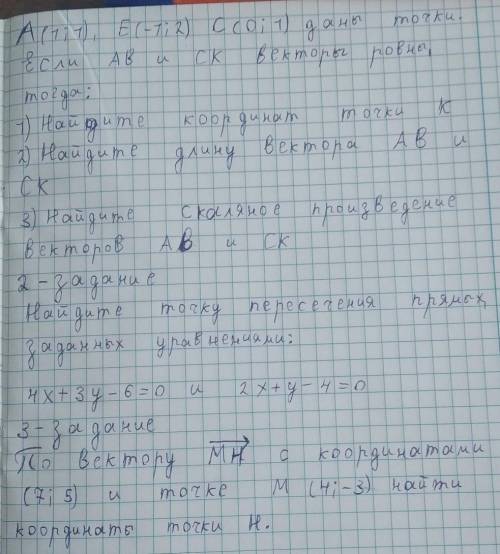 A(1;1), E(-1;2) C(0;1) даны точки.
Если AB и CK векторы равны,
тогда:
1) Найдите координат точки K
2) Найдите длину вектора AB и
CK
3) Найдите скаляное произведение
векторов AB и CK
2-задание
Найдите точку пересечения прямых,
заданных уравнениями:
4x+3y-6=0 и 2x+y-4=0
3-задание
По вектору MH с координатами
(7;5) и точке M (4;-3) найти
координаты точки H.